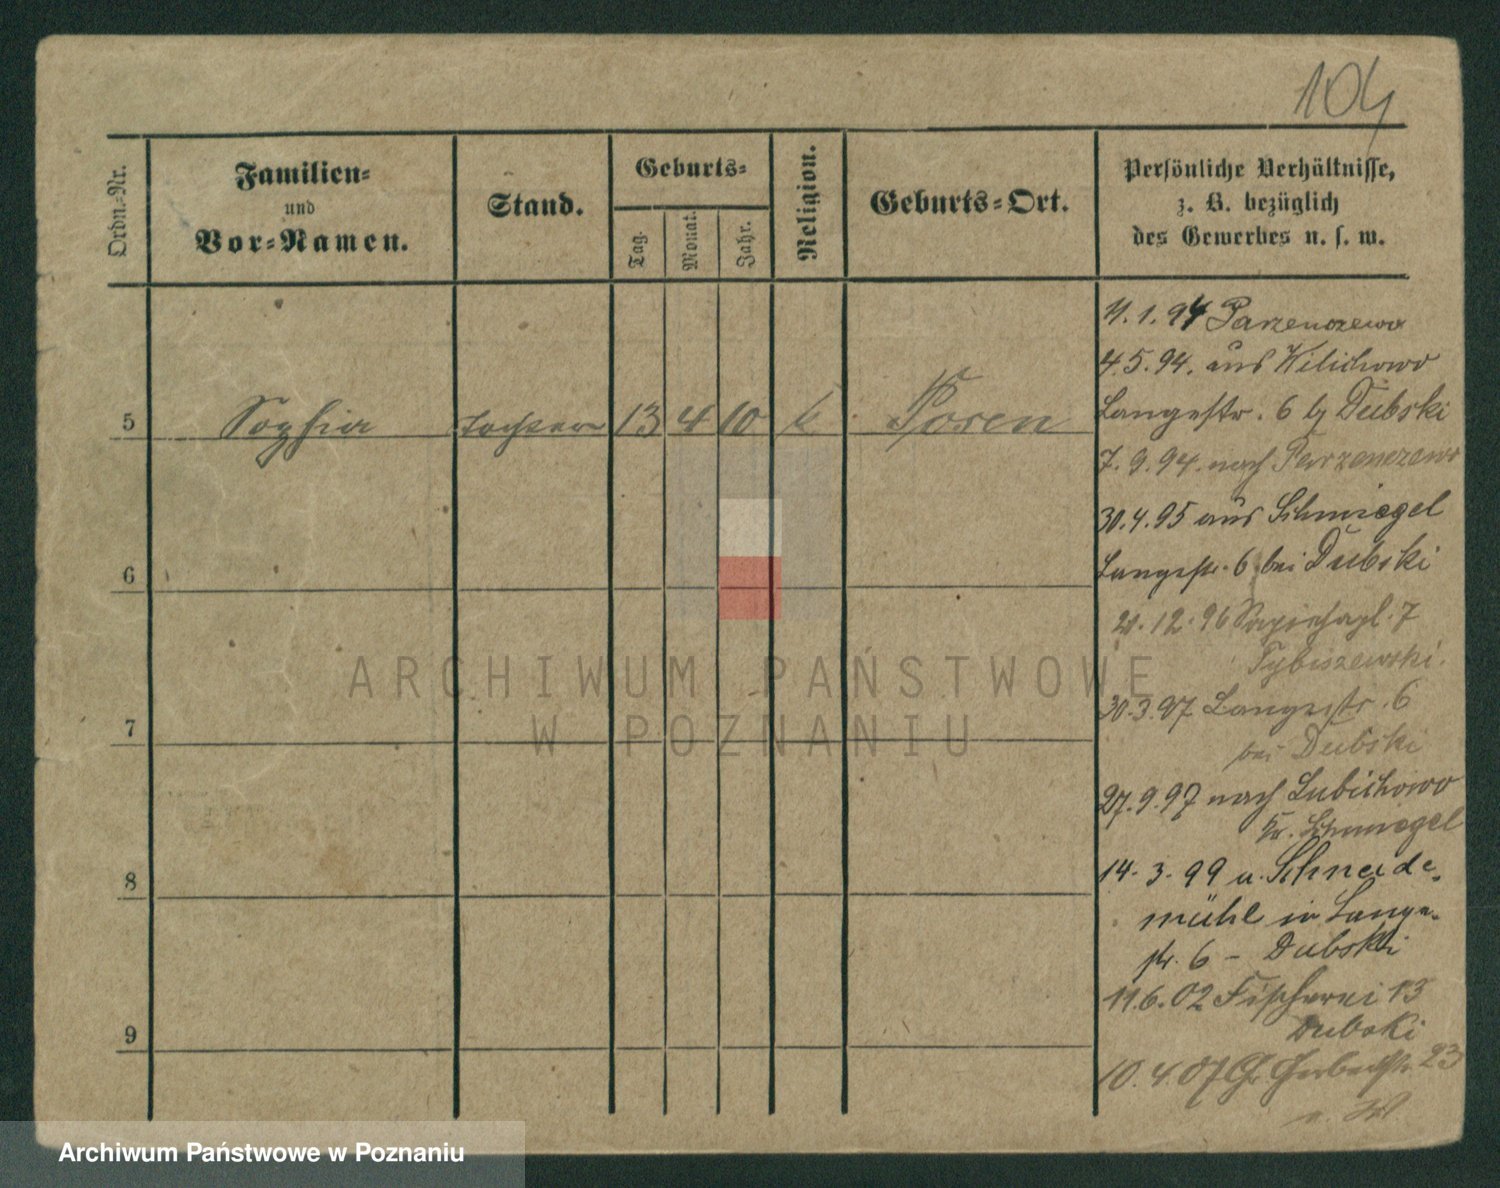 104
Ordn.-Nr.
Familien-
und
Vor-Namen.
Stand.
Geburts-
Tag.
Monat.
Jahr.
Religion.
Geburts-Ort.
Persönliche Verhältnisse,
z. B. bezüglich
des Gewerbes u. s. w.
5 Sophia Tochter 13 4 10 k Posen
6
7
8
9
11.1.94 Parzenczewo
4.5.94. aus Wilichowo
Langestr. 6 b/ Dubski
7.9.94. nach Parzenczewo
30.4.95 aus Schmiegel
Langestr. 6 bei Dubski
12.96 Sapiehapl. 7
Tybiszewski.
30.3.97 Langestr. 6
bei Dubski
27.9.97 nach Lubichowo
Kr. Schmiegel
14.3.99 u. Schneide-
mühl in Lange-
str. 6 – Dubski
11.6.02 Fischerei 13
Dubski
10.4.07 Gr. Gerberstr. 23
ARCHIWUM PAŃSTWOWE
W POZNANIU
Archiwum Państwowe w Poznaniu